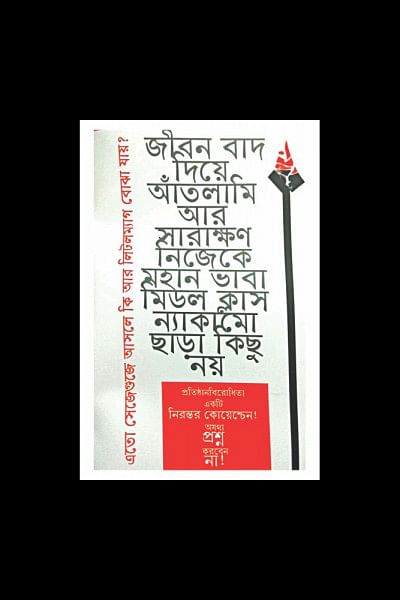 এতো সেজেগুজে আসলে কি আর লিটলম্যাগ বোঝা যায়?
জীবন বাদ
দিয়ে
আঁতলামি
আর
সারাক্ষণ
নিজেকে
মহান ভাবা
মিডল ক্লাস
ন্যাকামো
ছাড়া কিছু
নয়
প্রতিষ্ঠানবিরোধিতা
একটি
নিরন্তর কোয়েশ্চেন!
অযথা
প্রশ্ন
করবেন
না!